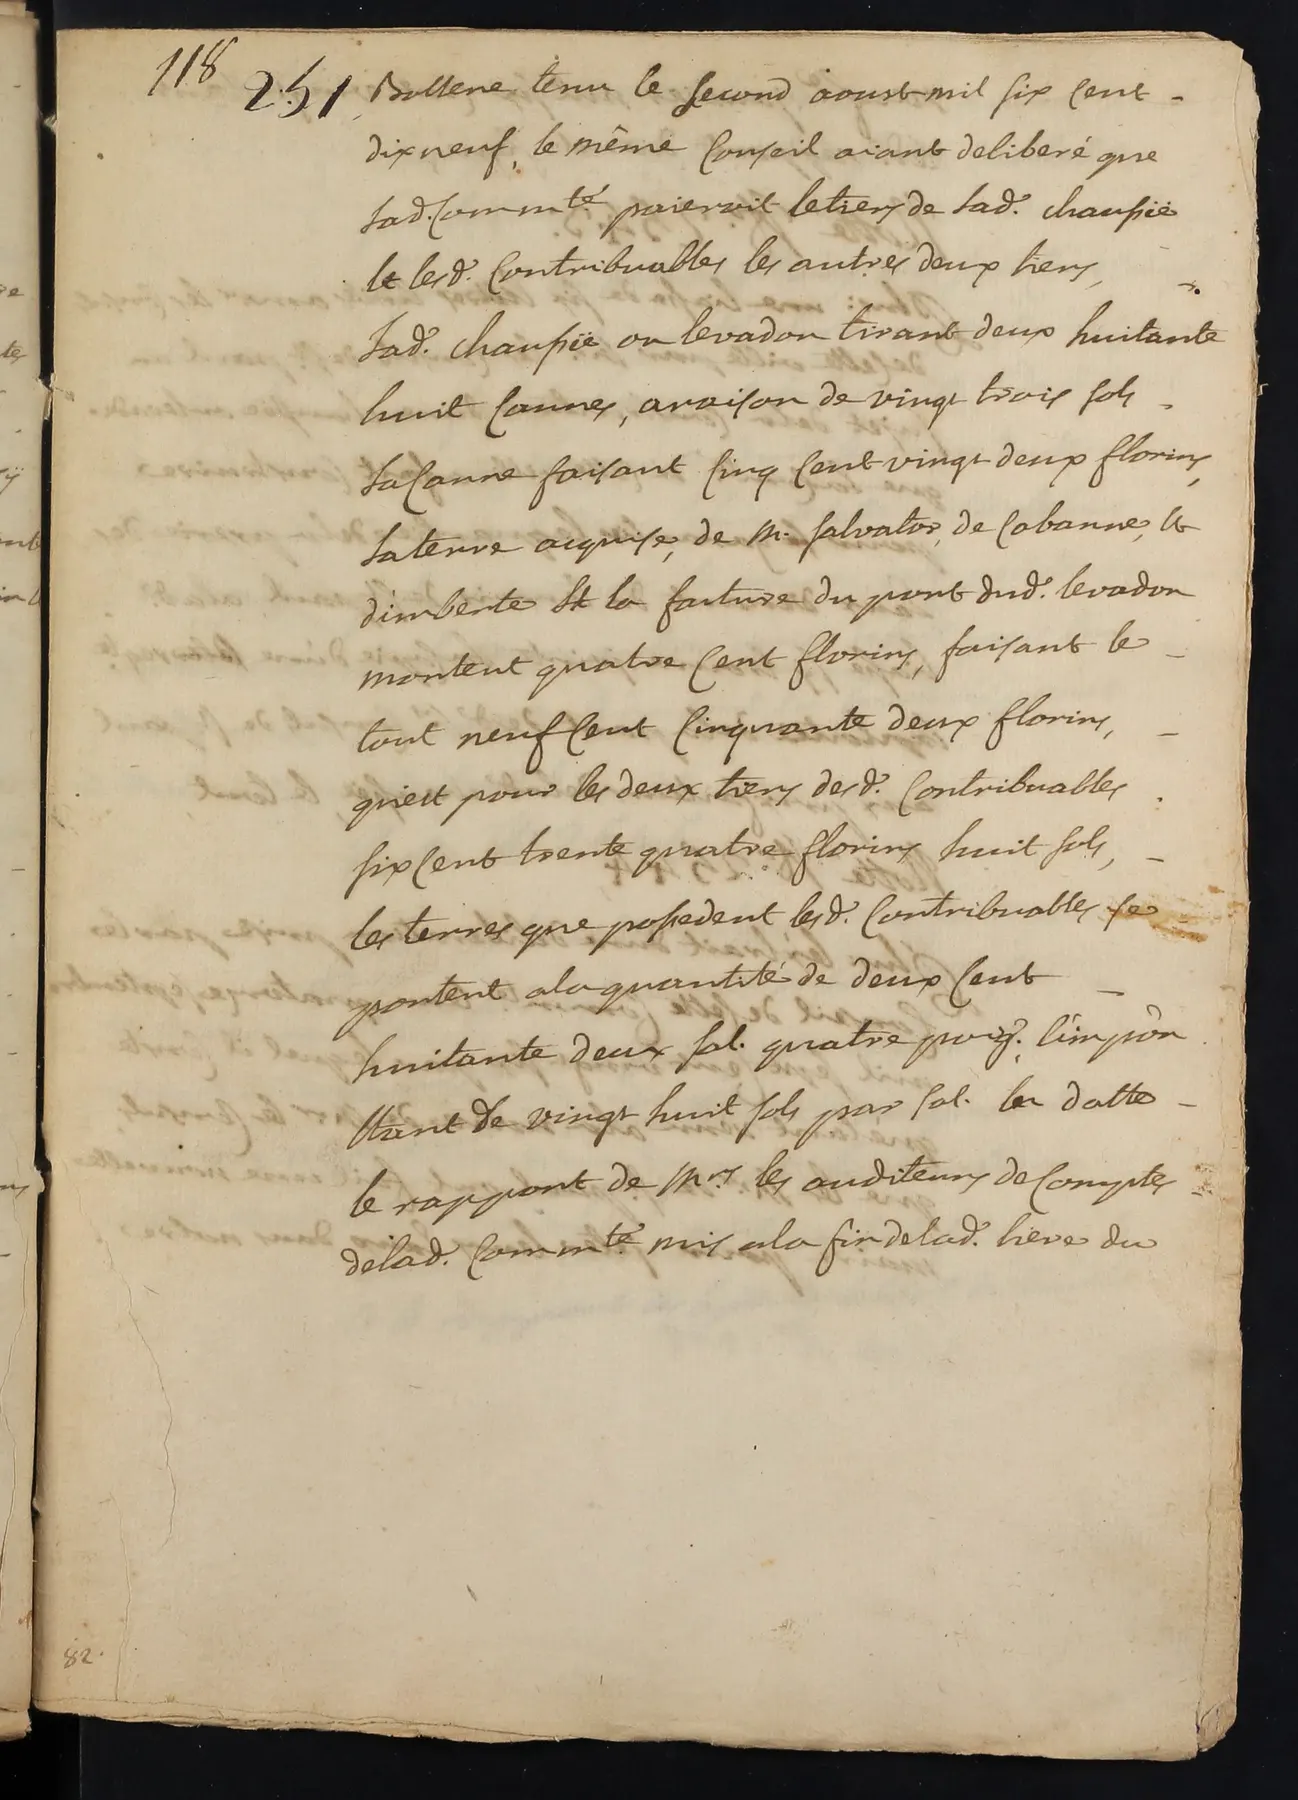 118
251
Bollene tenu le second aoust mil six cent
dix neuf, le même Conseil aiant deliberé que
lad. Commté paieroit le tiers de lad. chaussée
et lesd. Contribuables les autres deux tiers,
lad. chaussée ou levadon tirant deux huitante
huit Cannes, a raison de vingt trois sols
la Canne faisant Cinq Cent vingt deux florins,
la terre acquise, de M. Salvator, de Cabanne, et
d'imberte et la facture du pont dud. levadon
montent quatre Cent florins, faisant le
tout neuf Cent Cinquante deux florins,
qu'est pour les deux tiers desd. Contribuables
six Cent trente quatre florins huit sols,
les terres que possedent lesd. Contribuables se
portent a la quantité de deux Cent
huitante deux sal. quatre poig. l'impôn
étant de vingt huit sols par sal. la datte
le rapport de Mrs les auditeurs de Comptes
de lad. Commté mis a la fin de lad. lieve du
82.